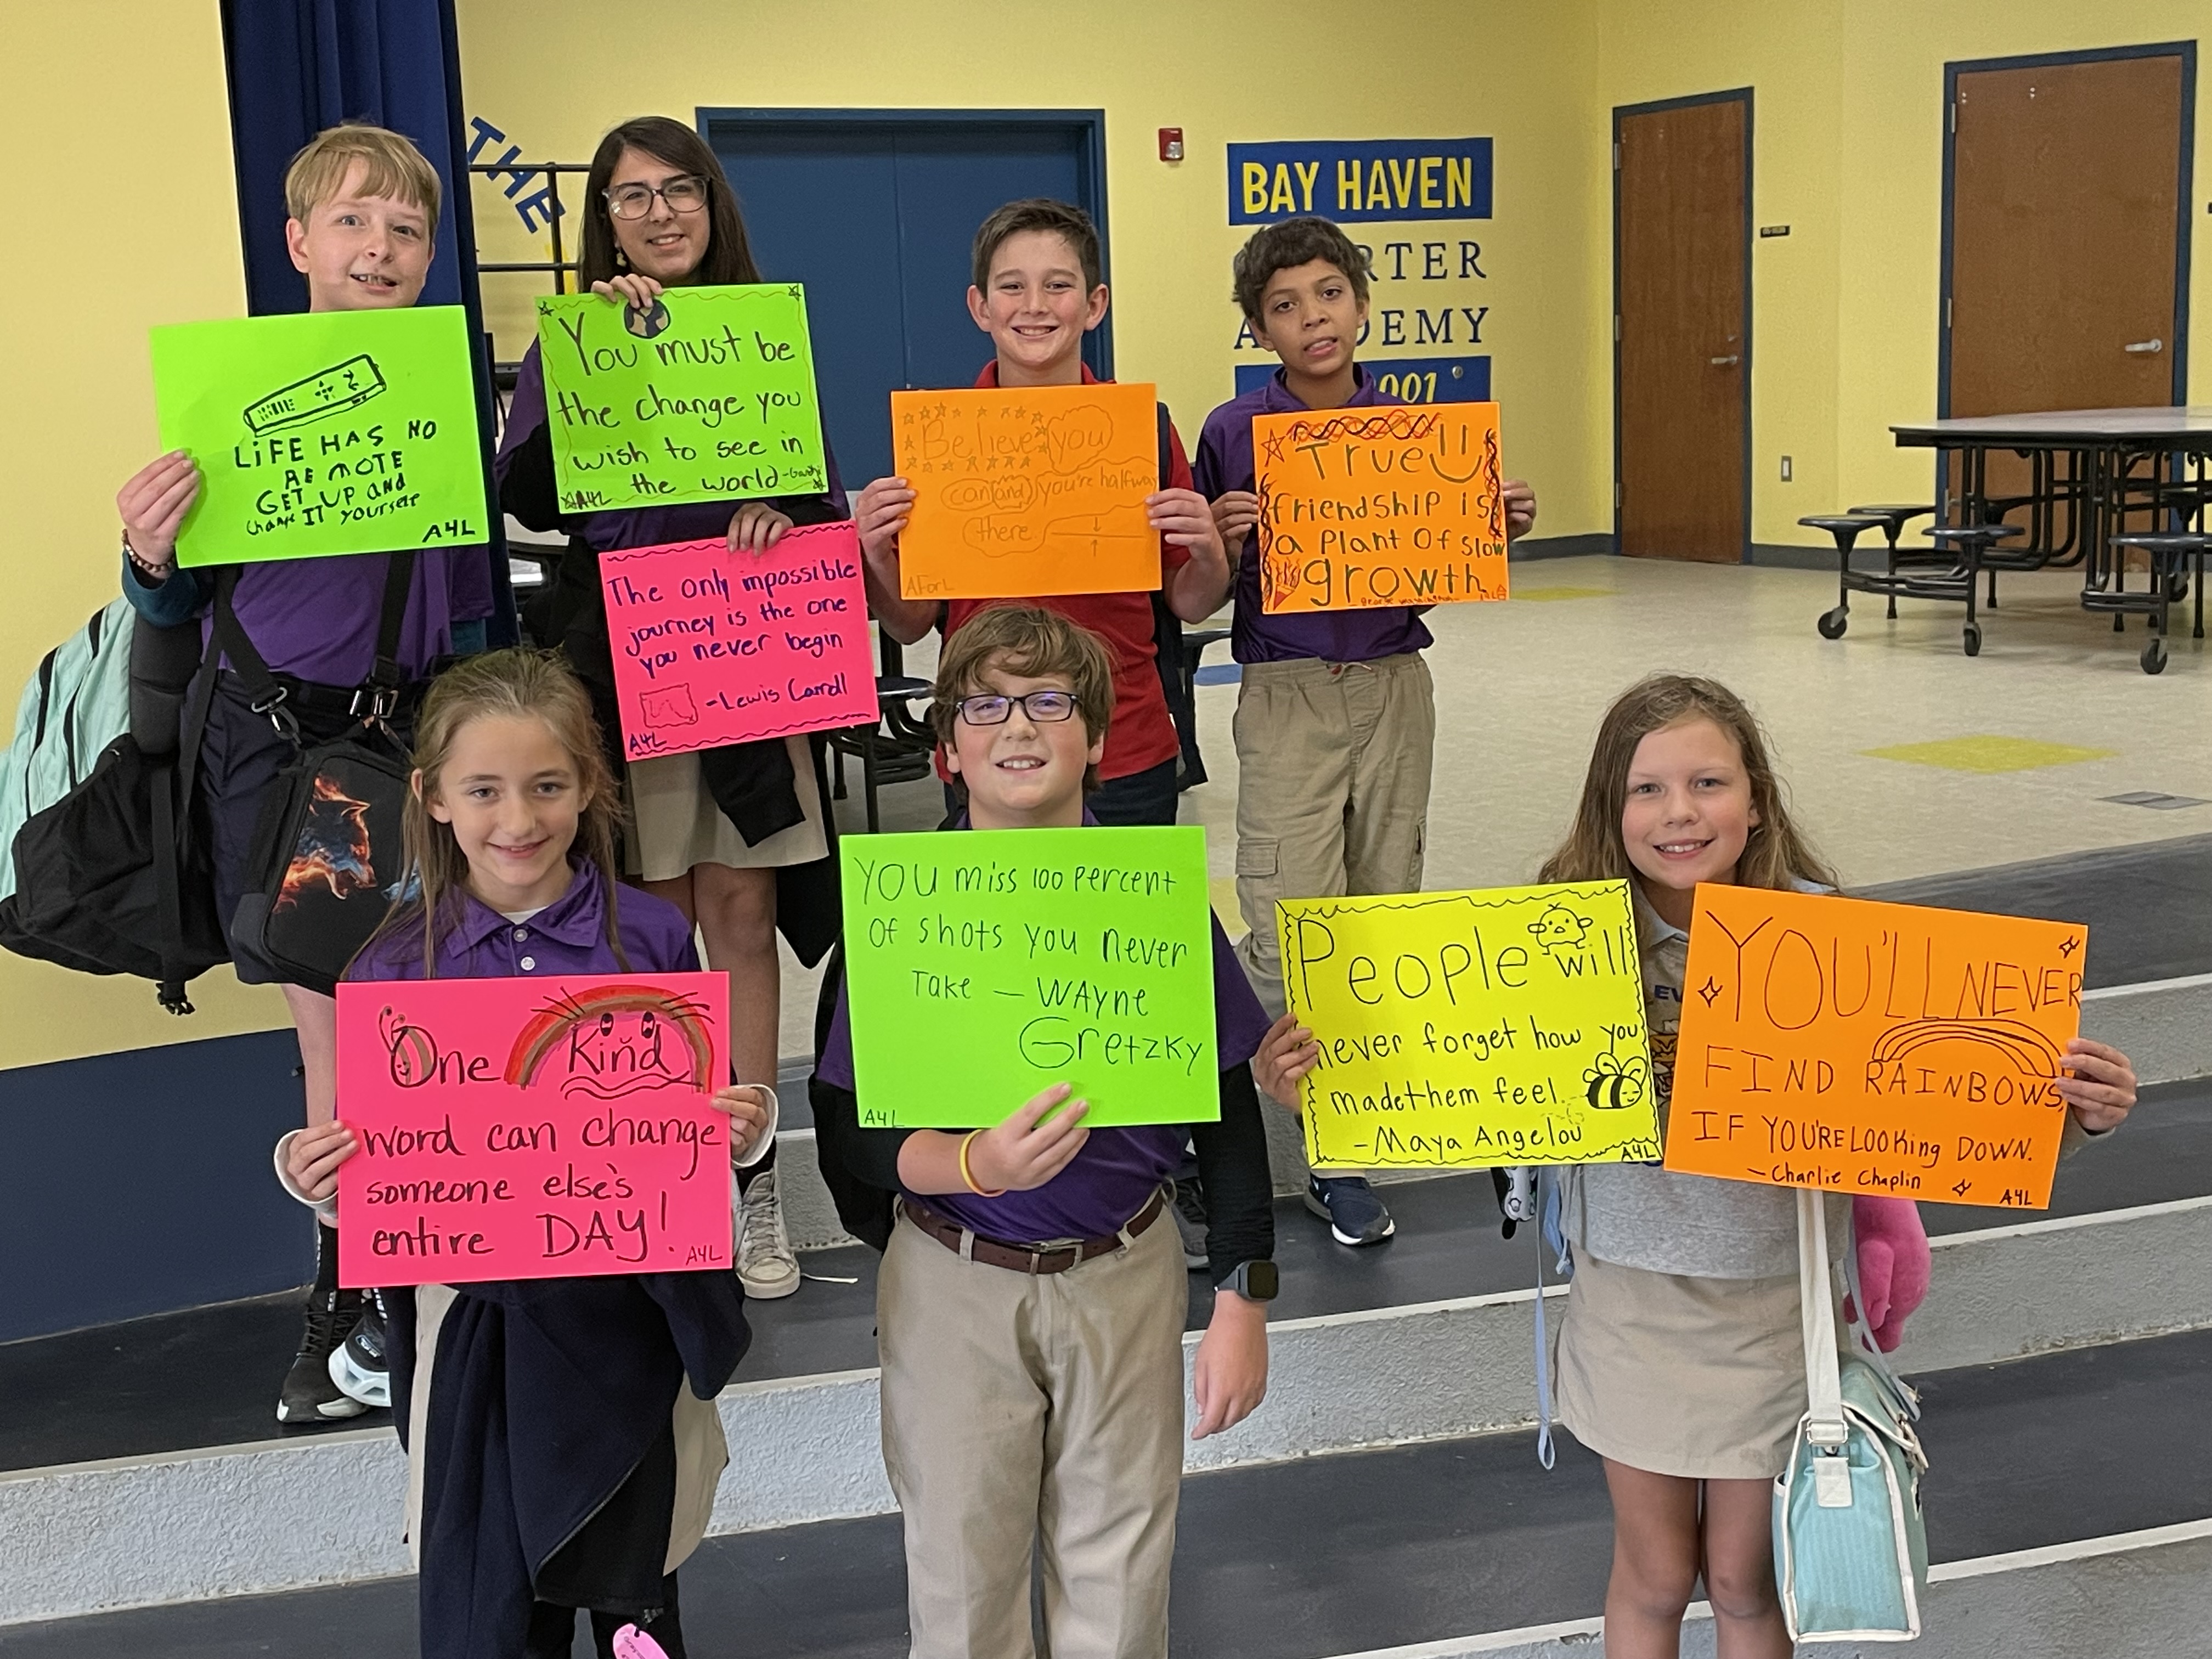 THE
BAY HAVEN
RTER
A DEMY
001
LiFE HAS NO
REMOTE
GET UP AND
Change IT yourself
A4L
You must be
the change you
wish to see in
the world -Gandhi
A4L
The only impossible
journey is the one
you never begin
-Lewis Carroll
A4L
Believe you
can and you're halfway
there
AForL
True
friendship is
a Plant Of slow
growth
-George Washington-
One Kind
word can change
someone else's
entire DAY!
A4L
YOU miss 100 percent
OF shots you never
Take — WAyne
Gretzky
A4L
People will
never forget how you
made them feel.
-Maya Angelou
A4L
YOU'LL NEVER
FIND RAINBOWS,
IF YOU'RE LOOKING DOWN.
-Charlie Chaplin
A4L